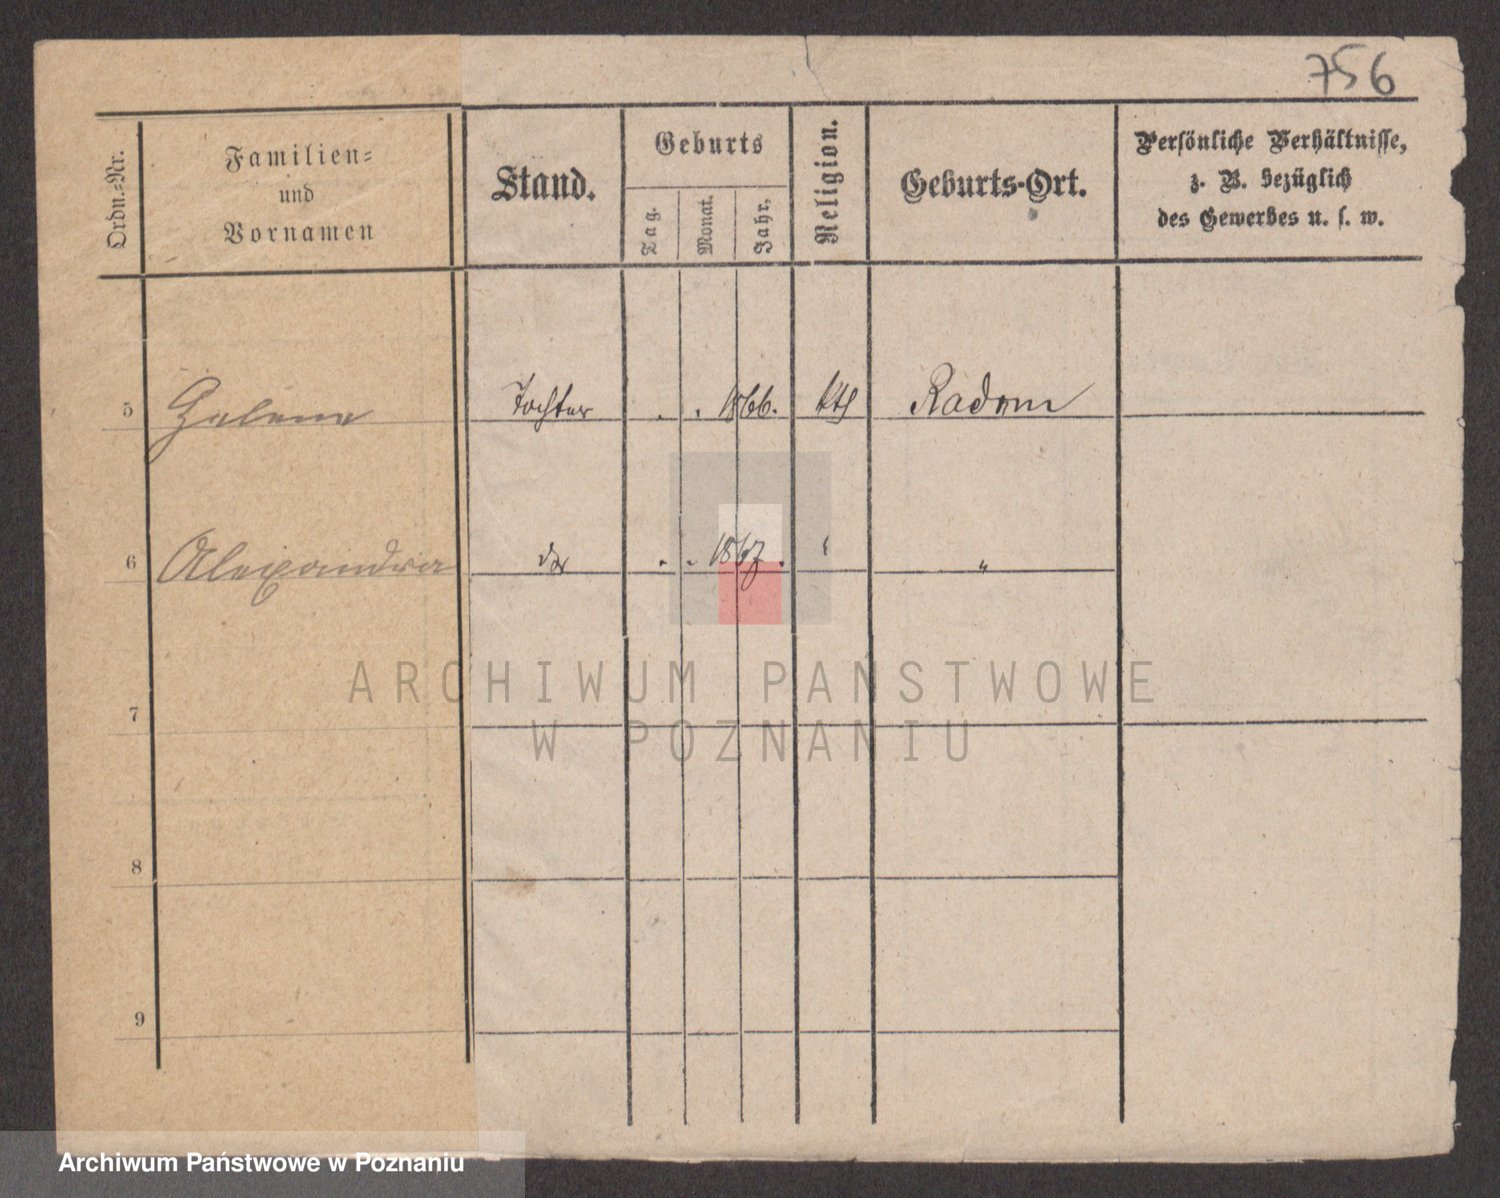 756
Ordn.-Nr.
Familien-
und
Vornamen
Stand.
Geburts
Tag.
Monat.
Jahr.
Religion.
Geburts-Ort.
Persönliche Verhältnisse,
z. B. bezüglich
des Gewerbes u. s. w.
5 Helene Tochter . . 1866. kth Radom
6 Alexandra do . . 1867. " "
7
8
9
ARCHIWUM PAŃSTWOWE
W POZNANIU
Archiwum Państwowe w Poznaniu